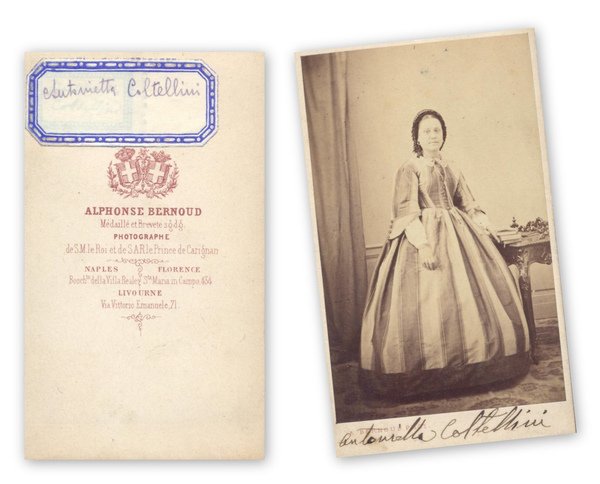 Antonietta Coltellini
ALPHONSE BERNOUD
Médaillé et Breveté s.g.d.g.
PHOTOGRAPHE
de S.M. le Roi et de S.A.R. le Prince de Carignan
NAPLES FLORENCE
della Villa Reale, Sta Maria in Campo, 434
LIVOURNE
Via Vittorio Emanuele, 21.
BERNOUD
Antonietta Coltellini